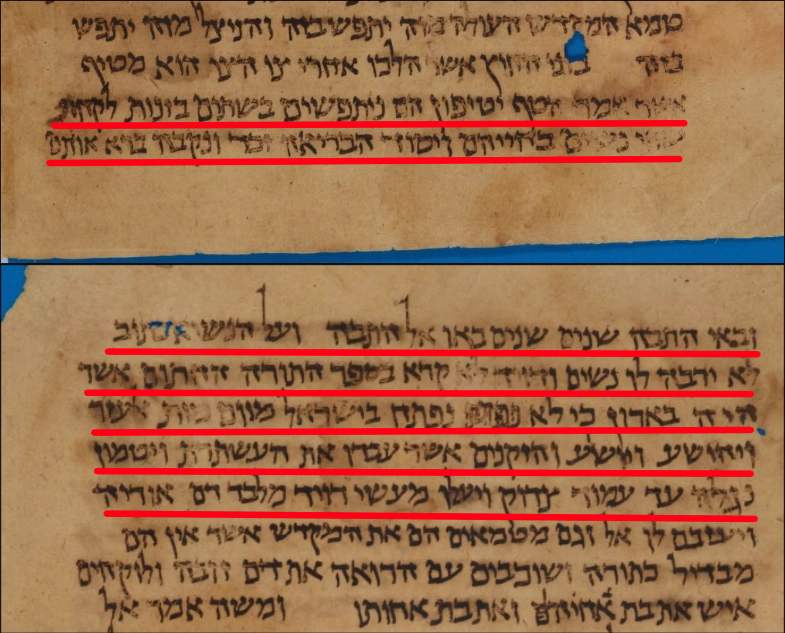 טמא המקדש העולה מזה יתפש בזה והניצל מזה יתפש
בזה בוני החוץ אשר הלכו אחרי צו הצו הוא מטיף
אשר אמר הטף יטיפון הם ניתפשים בשתים בזנות לקחת
שתי נשים בחייהם ויסוד הבריאה זכר ונקבה ברא אותם
ובאי התבה שנים שנים באו אל התבה ועל הנשיא כתוב
לא ירבה לו נשים ודויד לא קרא בספר התורה החתום אשר
היה בארון כי לא נפתח בישראל מיום מות אלעזר
ויהושע ויושע והזקנים אשר עבדו את העשתרת ויטמון
נגלה עד עמוד צדוק ויעלו מעשי דויד מלבד דם אוריה
ויעזבם לו אל וגם מטמאים הם את המקדש אשר אין הם
מבדיל כתורה ושוכבים עם הרואה את דם זובה ולוקחים
איש את בת אחיהם ואת בת אחותו ומשה אמר אל